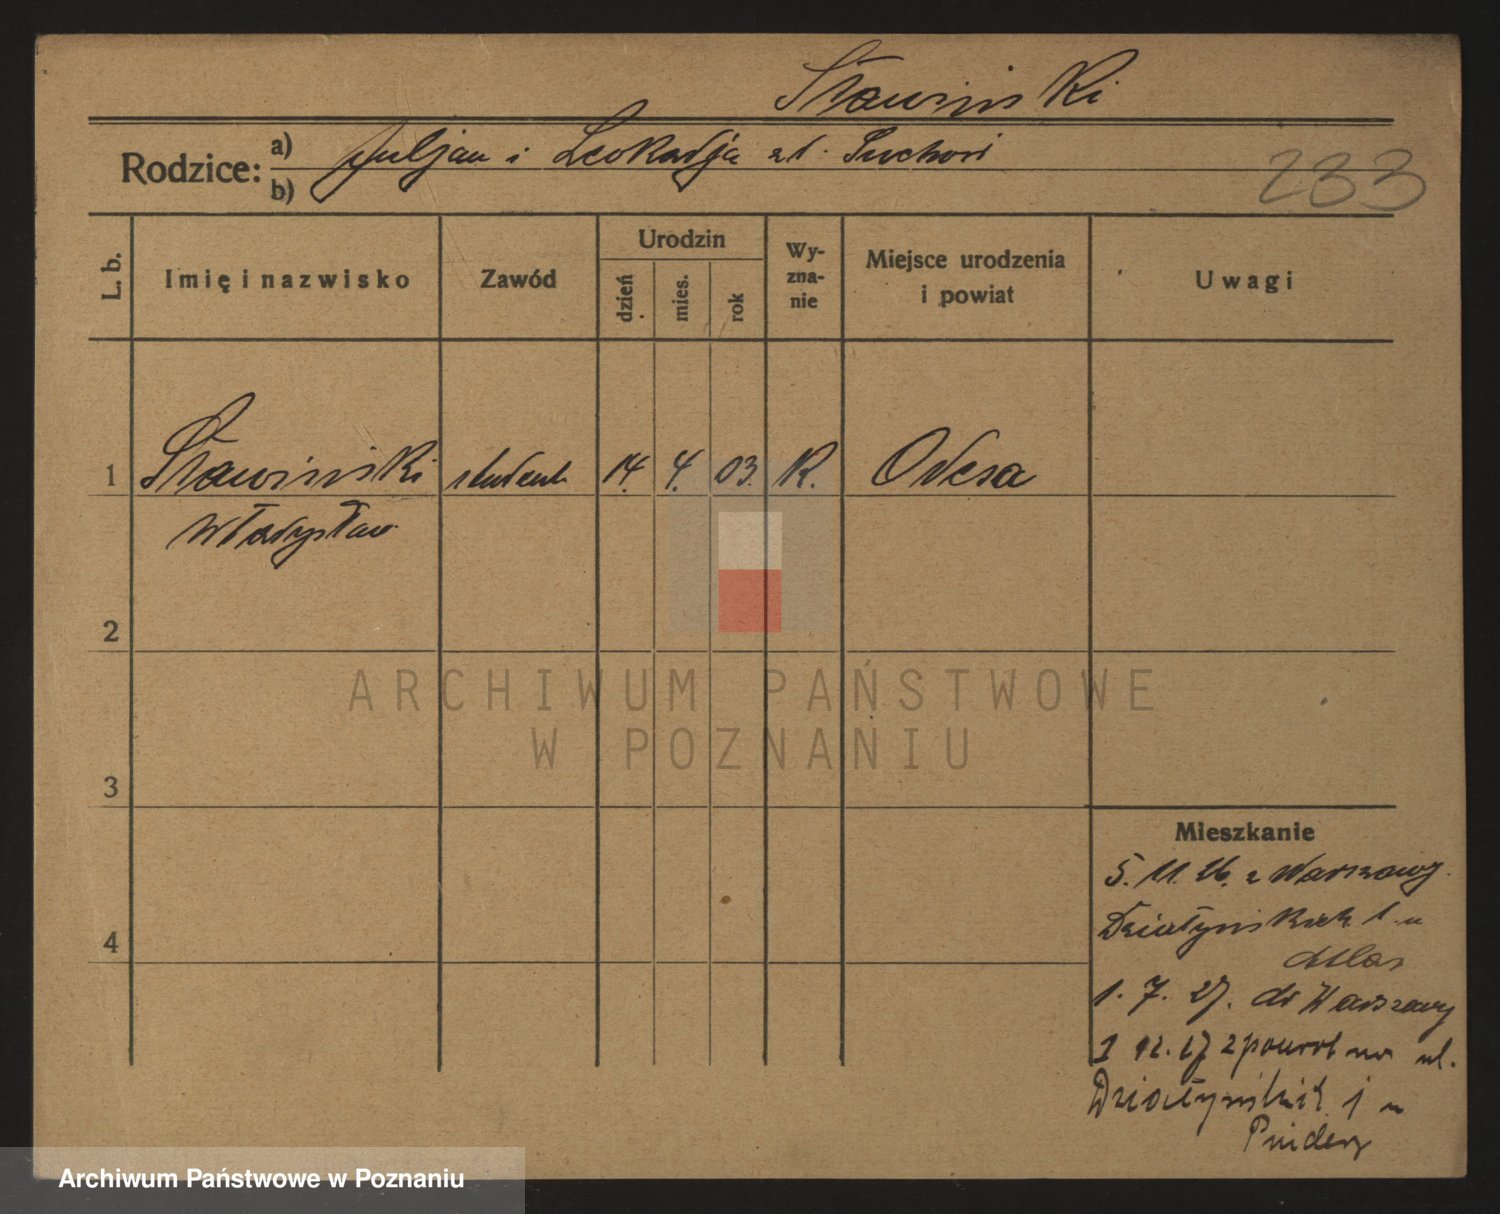 Sławiński
Rodzice: a) Juljan i Leokadja zd.
b)
233
L. b.
Imię i nazwisko
Zawód
Urodzin
dzień
mies.
rok
Wy-
zna-
nie
Miejsce urodzenia
i powiat
Uwagi
1 Sławiński student 14. 4. 03. R. Odesa
Władysław
2
3
4
Mieszkanie
5. 11. 26. z Warszawy.
Działyńskich 1 u
1. 7. 27. do Warszawy
1 12. 27 z powrot na ul.
Działyńskich 1 u
ARCHIWUM PAŃSTWOWE
W POZNANIU
Archiwum Państwowe w Poznaniu